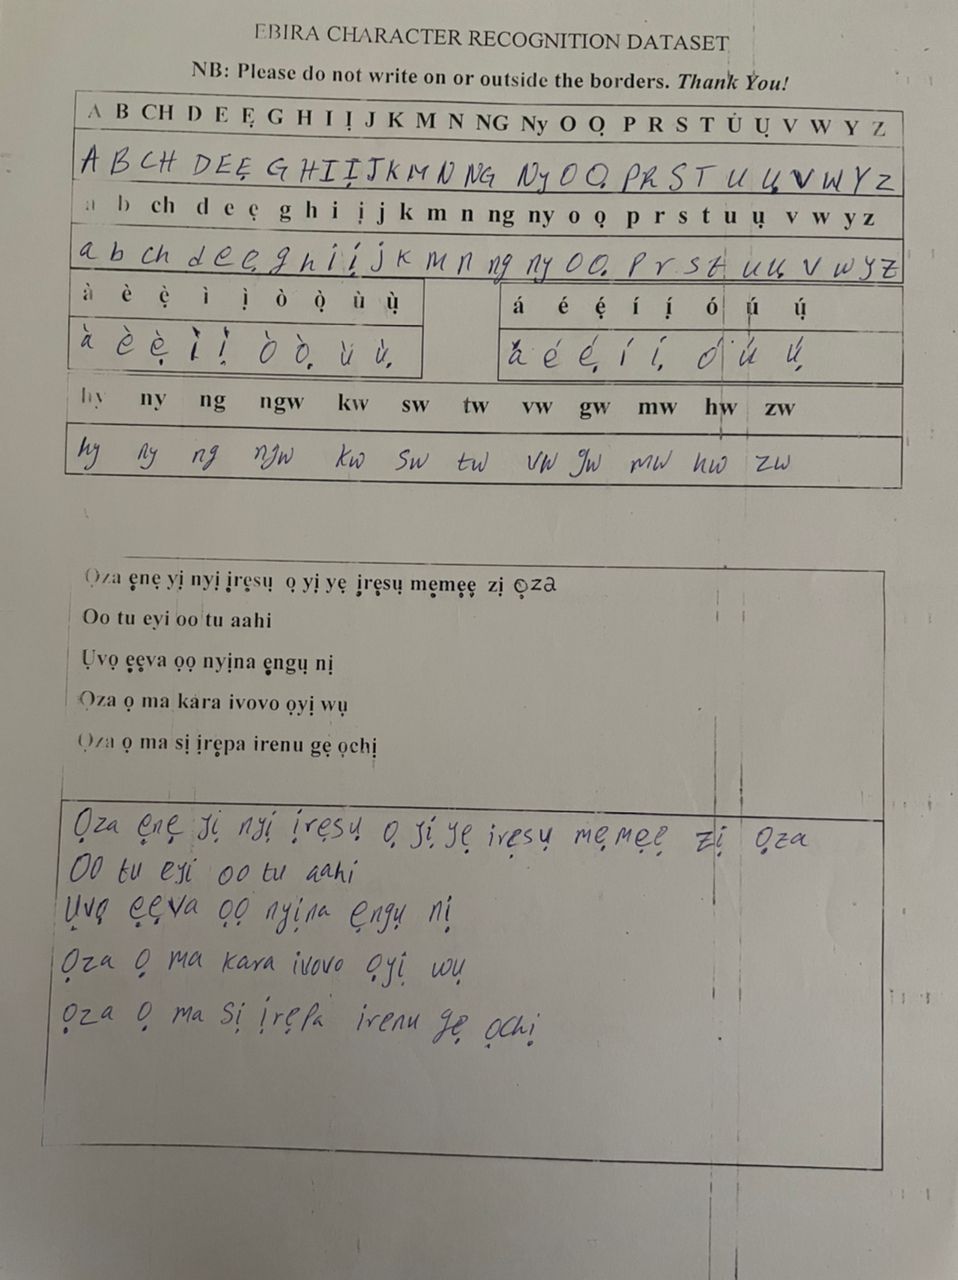 EBIRA CHARACTER RECOGNITION DATASET
NB: Please do not write on or outside the borders. Thank You!
A B CH D E Ẹ G H I Ị J K M N NG Ny O Ọ P R S T U Ụ V W Y Z
A B CH D E Ẹ G H I Ị J K M N NG Ny O Ọ P R S T U Ụ V W Y Z
a b ch d e ẹ g h i ị j k m n ng ny o ọ p r s t u ụ v w y z
a b ch d e ẹ g h i ị j k m n ng ny o ọ p r s t u ụ v w y z
à è ẹ̀ ì ị̀ ò ọ̀ ù ụ̀ á é ẹ́ í ị́ ó ú ụ́
à è ẹ̀ ì ị̀ ò ọ̀ ù ụ̀ á é ẹ́ í ị́ ó ú ụ́
hy ny ng ngw kw sw tw vw gw mw hw zw
hy ny ng ngw kw sw tw vw gw mw hw zw
Ọza ẹnẹ yị nyị ịrẹsụ ọ yị yẹ ịrẹsụ mẹmẹẹ zị ọza
Oo tu eyi oo tu aahi
Ụvọ ẹẹva ọọ nyịna ẹngụ nị
Ọza ọ ma kara ivovo ọyị wụ
Ọza ọ ma sị ịrẹpa irenu gẹ ọchị
Ọza ẹnẹ yị nyị ịrẹsụ ọ yị yẹ irẹsụ mẹmẹẹ zị ọza
Oo tu eyi oo tu aahi
Ụvọ ẹẹva ọọ nyịna ẹngụ nị
Ọza ọ ma kara ivovo ọyị wụ
Ọza ọ ma sị ịrẹpa irenu gẹ ọchị